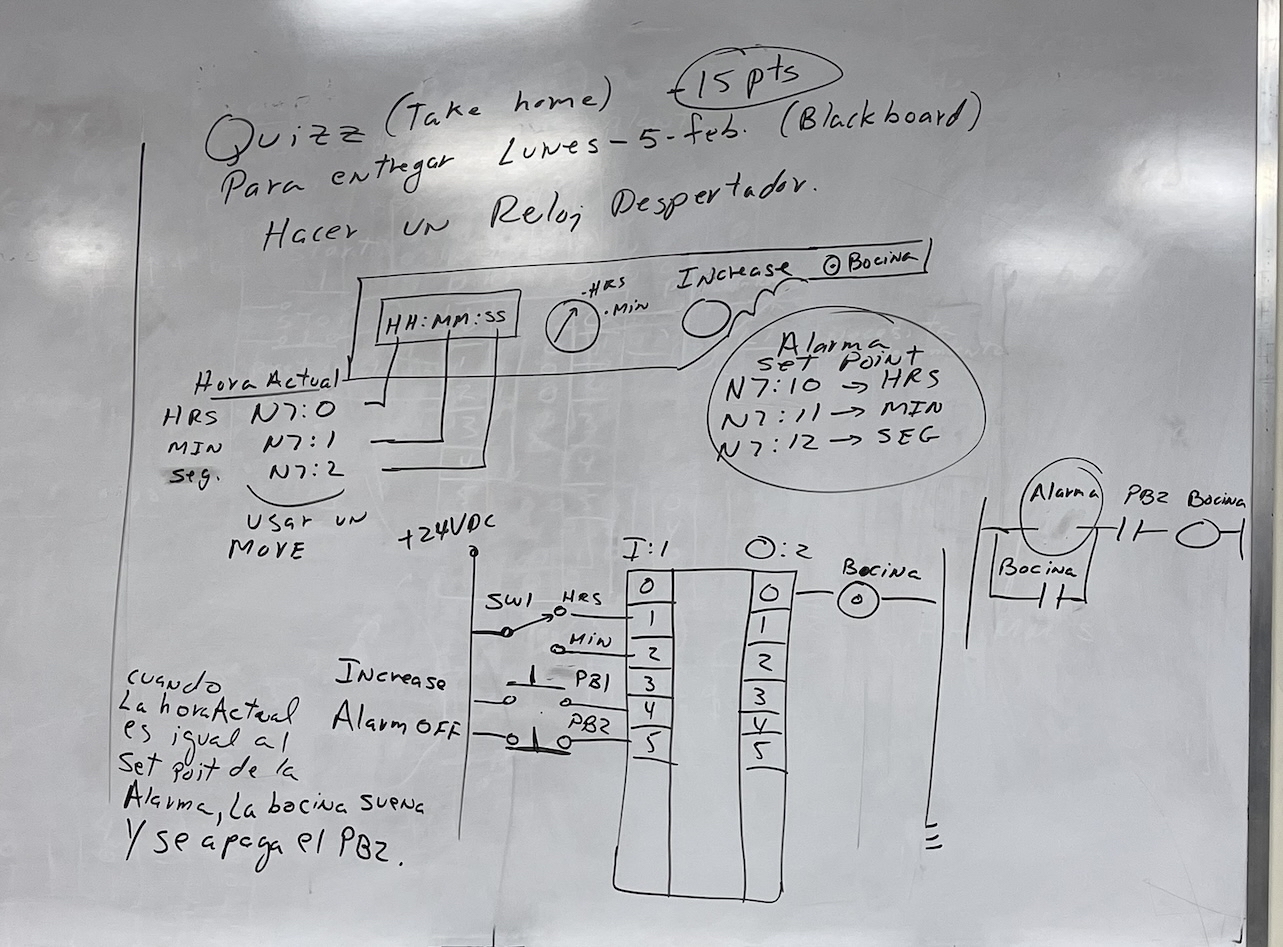 Quizz (Take home) - 15 pts
Para entregar Lunes - 5 - feb. (Blackboard)
Hacer un Reloj Despertador.
HH:MM:SS
. HRS
. Min
Increase
Bocina
Hora Actual
HRS N7:0
MIN N7:1
seg. N7:2
Usar un
MOVE
Alarma
Set Point
N7:10 → HRS
N7:11 → MIN
N7:12 → SEG
+24VDC
SW1 HRS
Min
Increase PB1
Alarm OFF PB2
I:1
0
1
2
3
4
5
O:2
0
1
2
3
4
5
Bocina
Alarma PB2 Bocina
Bocina
cuando
La horaActual
es igual al
Set Poit de la
Alarma, La bocina suena
Y se apaga el PB2.